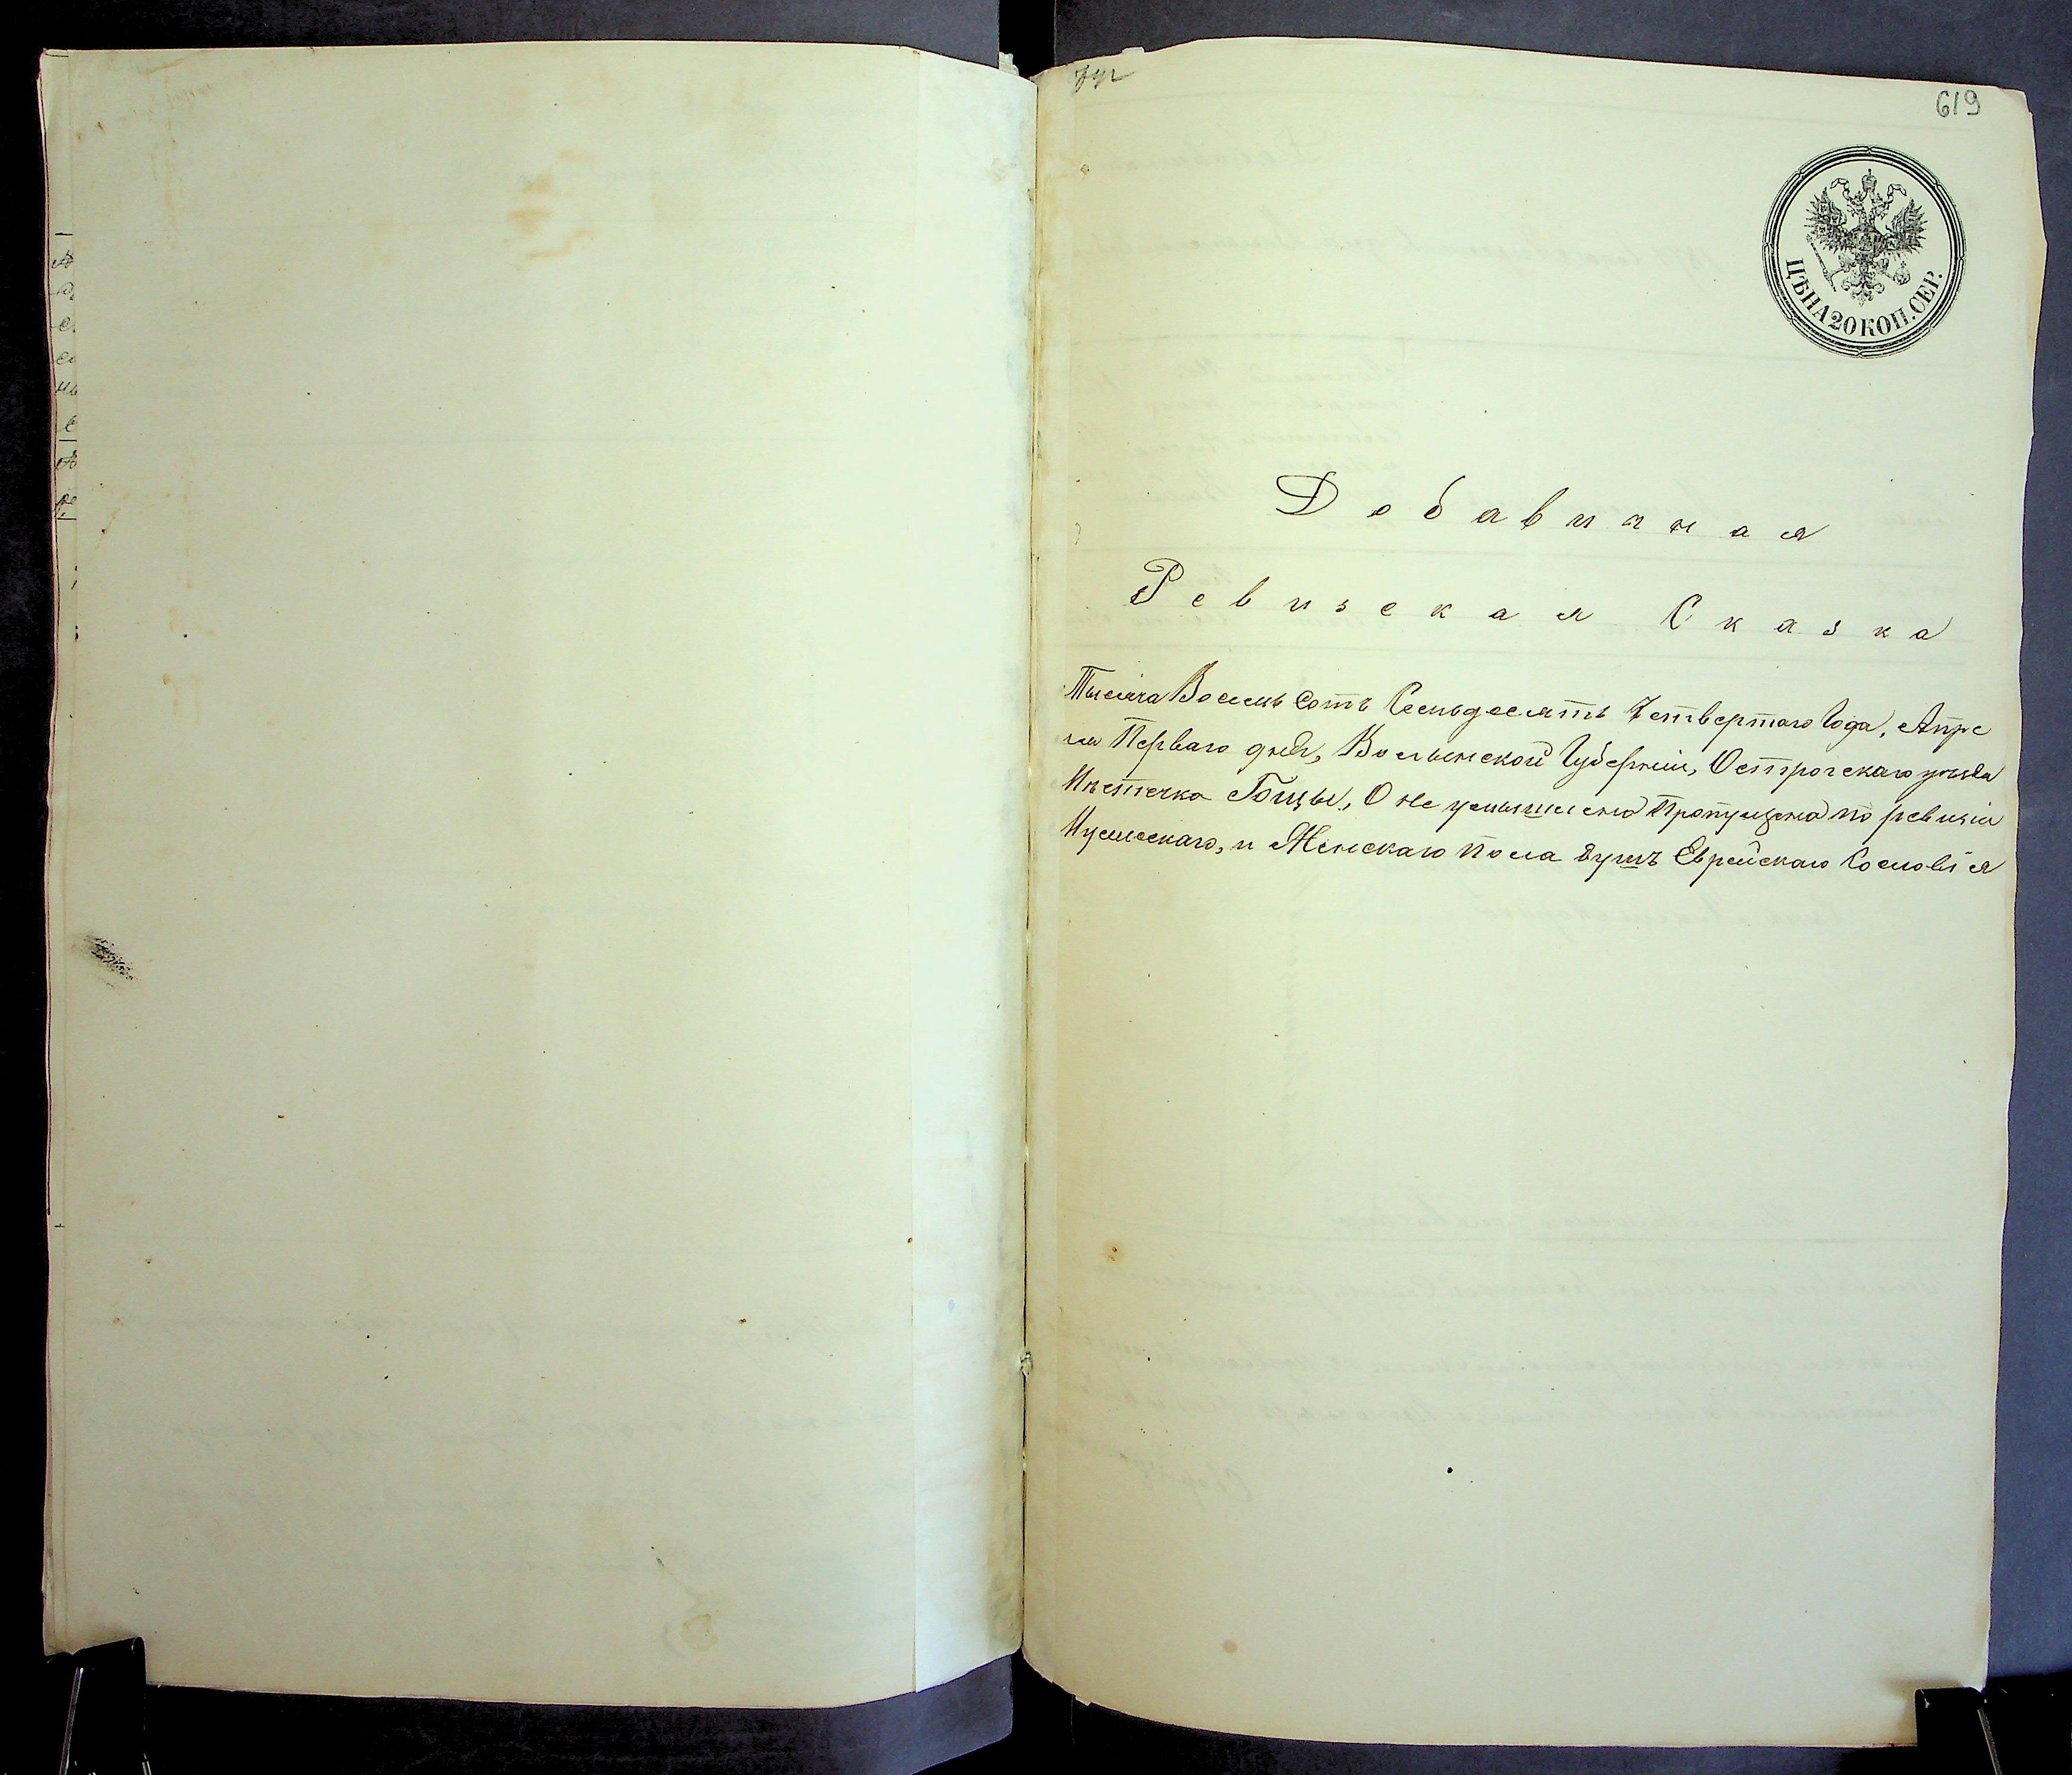 619
ЦѢНА 20 КОП. СЕР.
Добавичная
Ревизская Сказка
Тысяча Восемь Сотъ Семьдесятъ Четвертаго Года, Апре
ля Перваго дня, Волынской Губернiи, Острогскаго уѣзда
Мѣстечка Гощы, О не умышлено Пропущено по ревизiи
Мужескаго, и Женскаго пола душъ Еврейскаго Сословiя